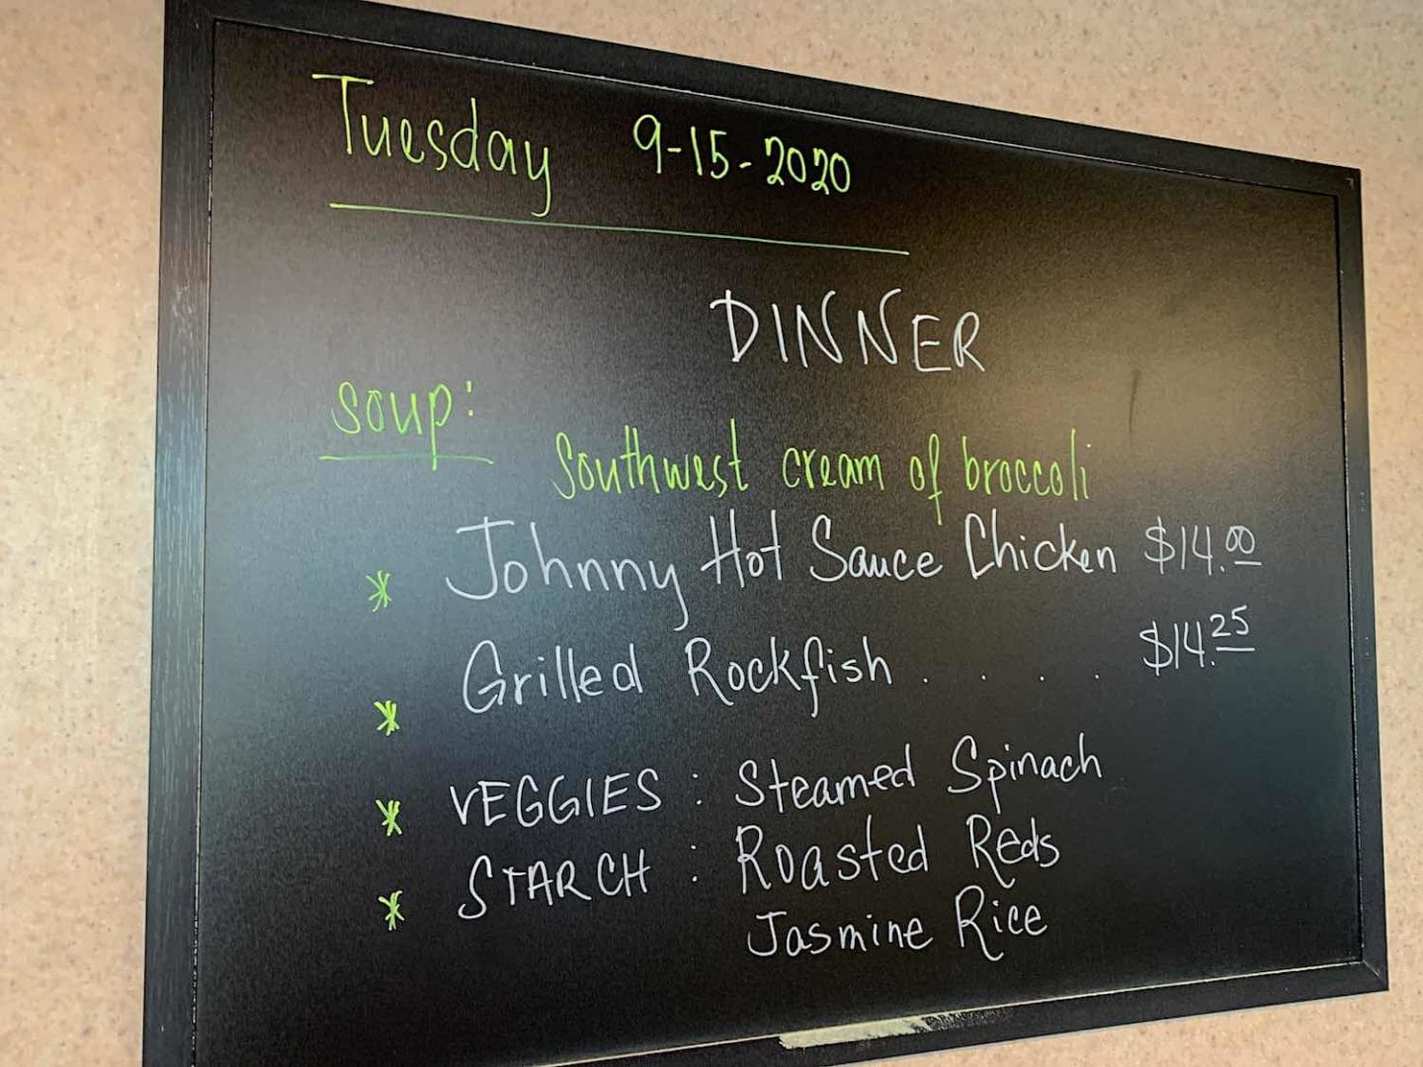 Tuesday 9-15-2020
DINNER
Soup:
Southwest cream of broccoli
* Johnny Hot Sauce Chicken $14.00
* Grilled Rockfish . . . . $14.25
* VEGGIES : Steamed Spinach
* STARCH : Roasted Reds
Jasmine Rice